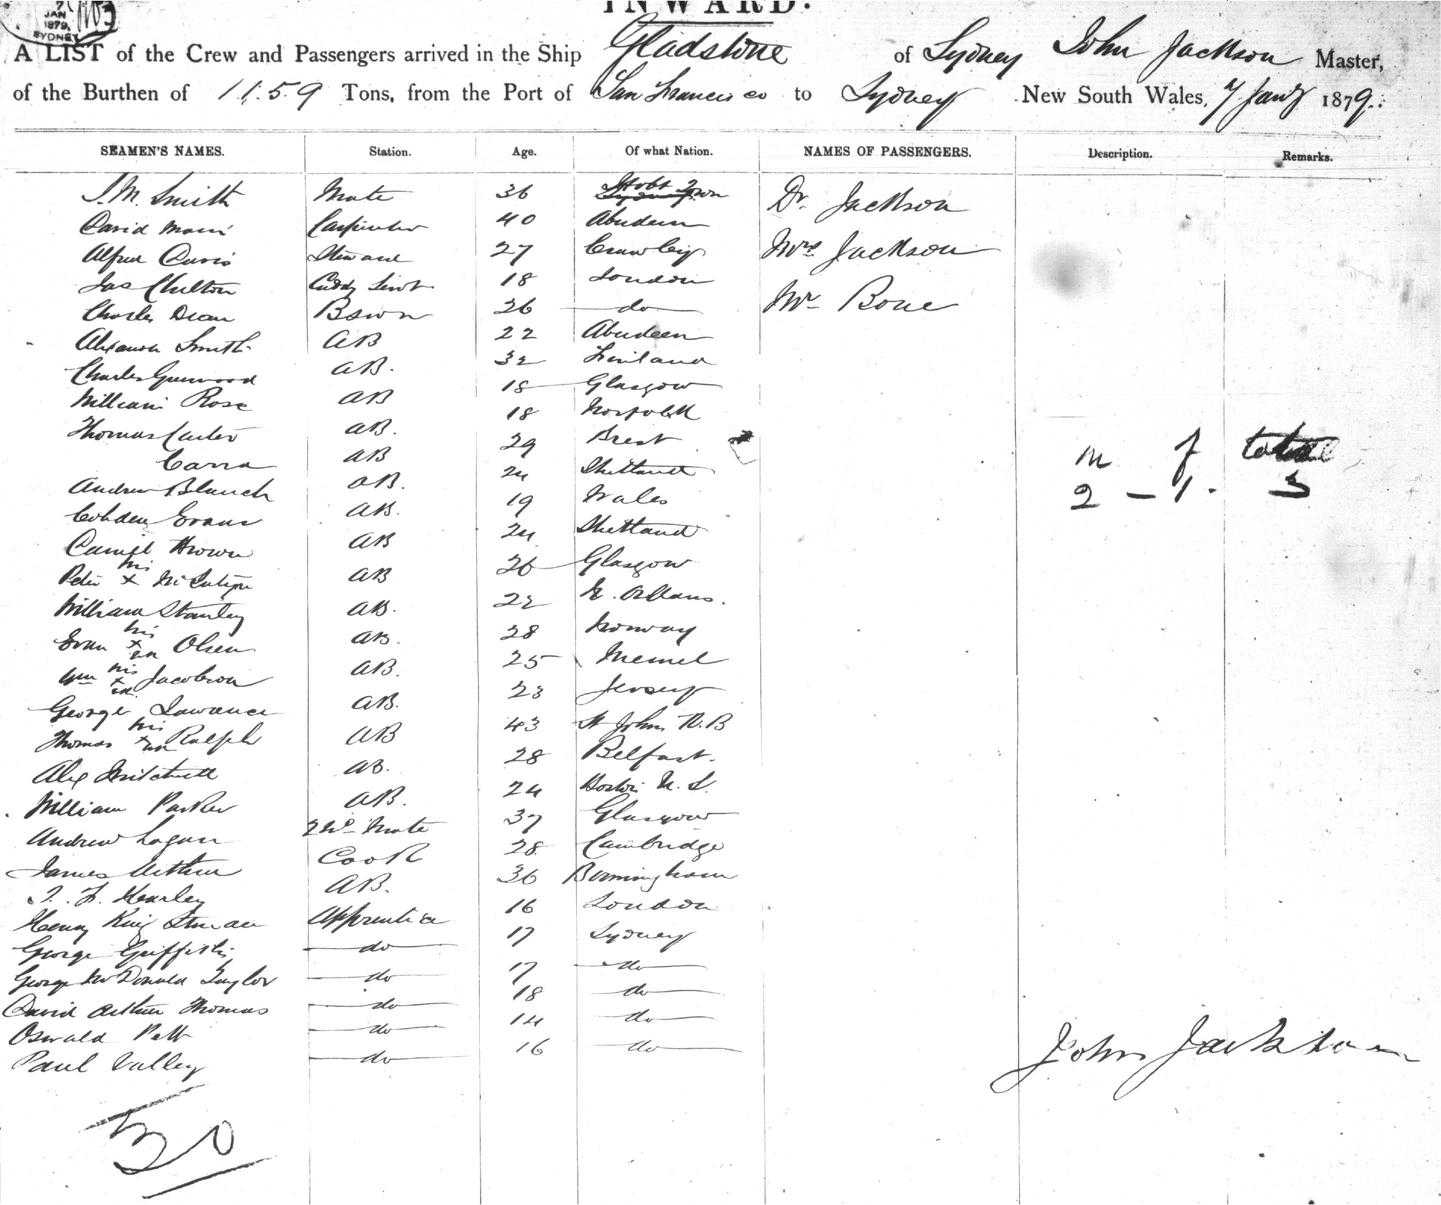 7
JAN
1879
SYDNEY
INWARD.
A LIST of the Crew and Passengers arrived in the Ship Gladstone of Sydney John Jackson Master,
of the Burthen of 1159 Tons, from the Port of San Francisco to Sydney New South Wales, 7 Jany 1879.
SEAMEN'S NAMES. Station. Age. Of what Nation. NAMES OF PASSENGERS. Description. Remarks.
Smith Mate 36 Hobt Town Dr Jackson
David Carpenter 40 Aberdeen
Alfred Davis Steward 27 Crawley Mrs Jackson
Jas Chilton Cuddy Servt 18 London
Charles Dean Bswn 26 do Mr Bone
Alexander Smith AB 22 Aberdeen
Charles Greenwood AB. 32 Finland
William Rose AB 18 Glasgow
Thomas Carter AB. 18 Norfolk
Carra AB 29 Brest
Andrew Blanch AB. 24 Shetland m f total
Cobden Evans AB. 19 Wales 2 – 1. 3
Daniel Brown AB 24 Shetland
Peter his x McIntyre AB 26 Glasgow
William Stanley AB. 22 N. Orleans.
Evan his x Olsen AB. 28 Norway
Wm his x Jacobson AB. 25 Memel
George Lawrance AB. 23 Jersey
Thomas his x Ralph AB 43 St John N.B
Alex Mitchell AB. 28 Belfast.
William Parker AB. 24 Boston U.S.
Andrew Logan 2nd Mate 37 Glasgow
James Arthur Cook 28 Cambridge
Kearley AB. 36 Birmingham
Henry King Apprentice 16 London
George Griffiths do 17 Sydney
George McDonald Taylor do 17 do
David Arthur Thomas do 18 do
Oswald do 14 do
Paul Valley do 16 do
John Jackson
30